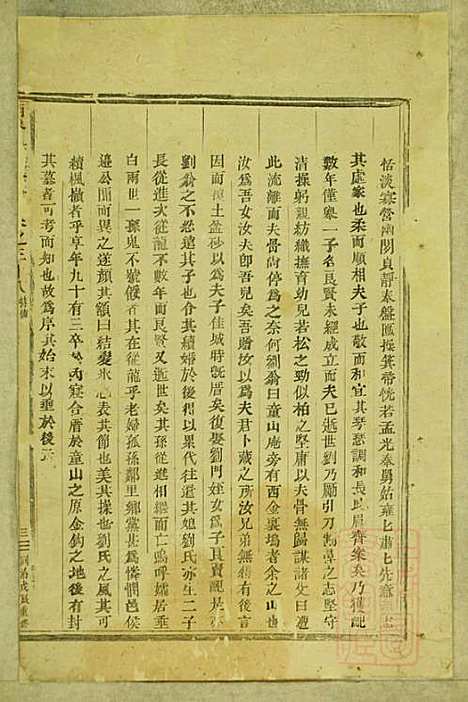 恬淡寡營幽閒貞靜奉盤匜捧箕帚恍若孟光奉舅姑雍七肅七先意
其處家也柔而順相夫子也敬而和宜其琴瑟調和長民眉齊案矣乃獲配
數年僅舉一子名良賢未經成立而夫已逝世劉乃勵引刀
清操躬親紡織撫育幼兒若松之勁似柏之堅庸以夫骨無歸謀諸父曰遭
此流離而夫骨尚停爲之奈何劉翁曰童山庵旁有酉金裏塢者余之山也
汝爲吾女汝夫卽吾兒矣吾贈汝以爲夫君卜葬之所汝兄弟無得有後言
因而負土盎砂以爲夫子佳城時旣厝矣復娶劉門姪女爲子良賢配
劉翁之不忍遠其子也合其續婚於後穆以累代往還其娘劉氏亦生二子
長從進次從龍不數年而良賢又逝世矣其孫從進相繼而亡嗚呼孀居垂
白兩世一孫鬼不號餒者其在從龍乎老婦孤孫鄰里鄉黨甚爲憐憫邑侯
遠公聞而異之遂顏其額曰結變氷心表其節也美其操也劉氏之風其可
續楓撤者乎享年九十有三卒 丙寅合厝於童山之原金鈎之地後有封
其墓者可考而知也故爲序其始末以垂於後云